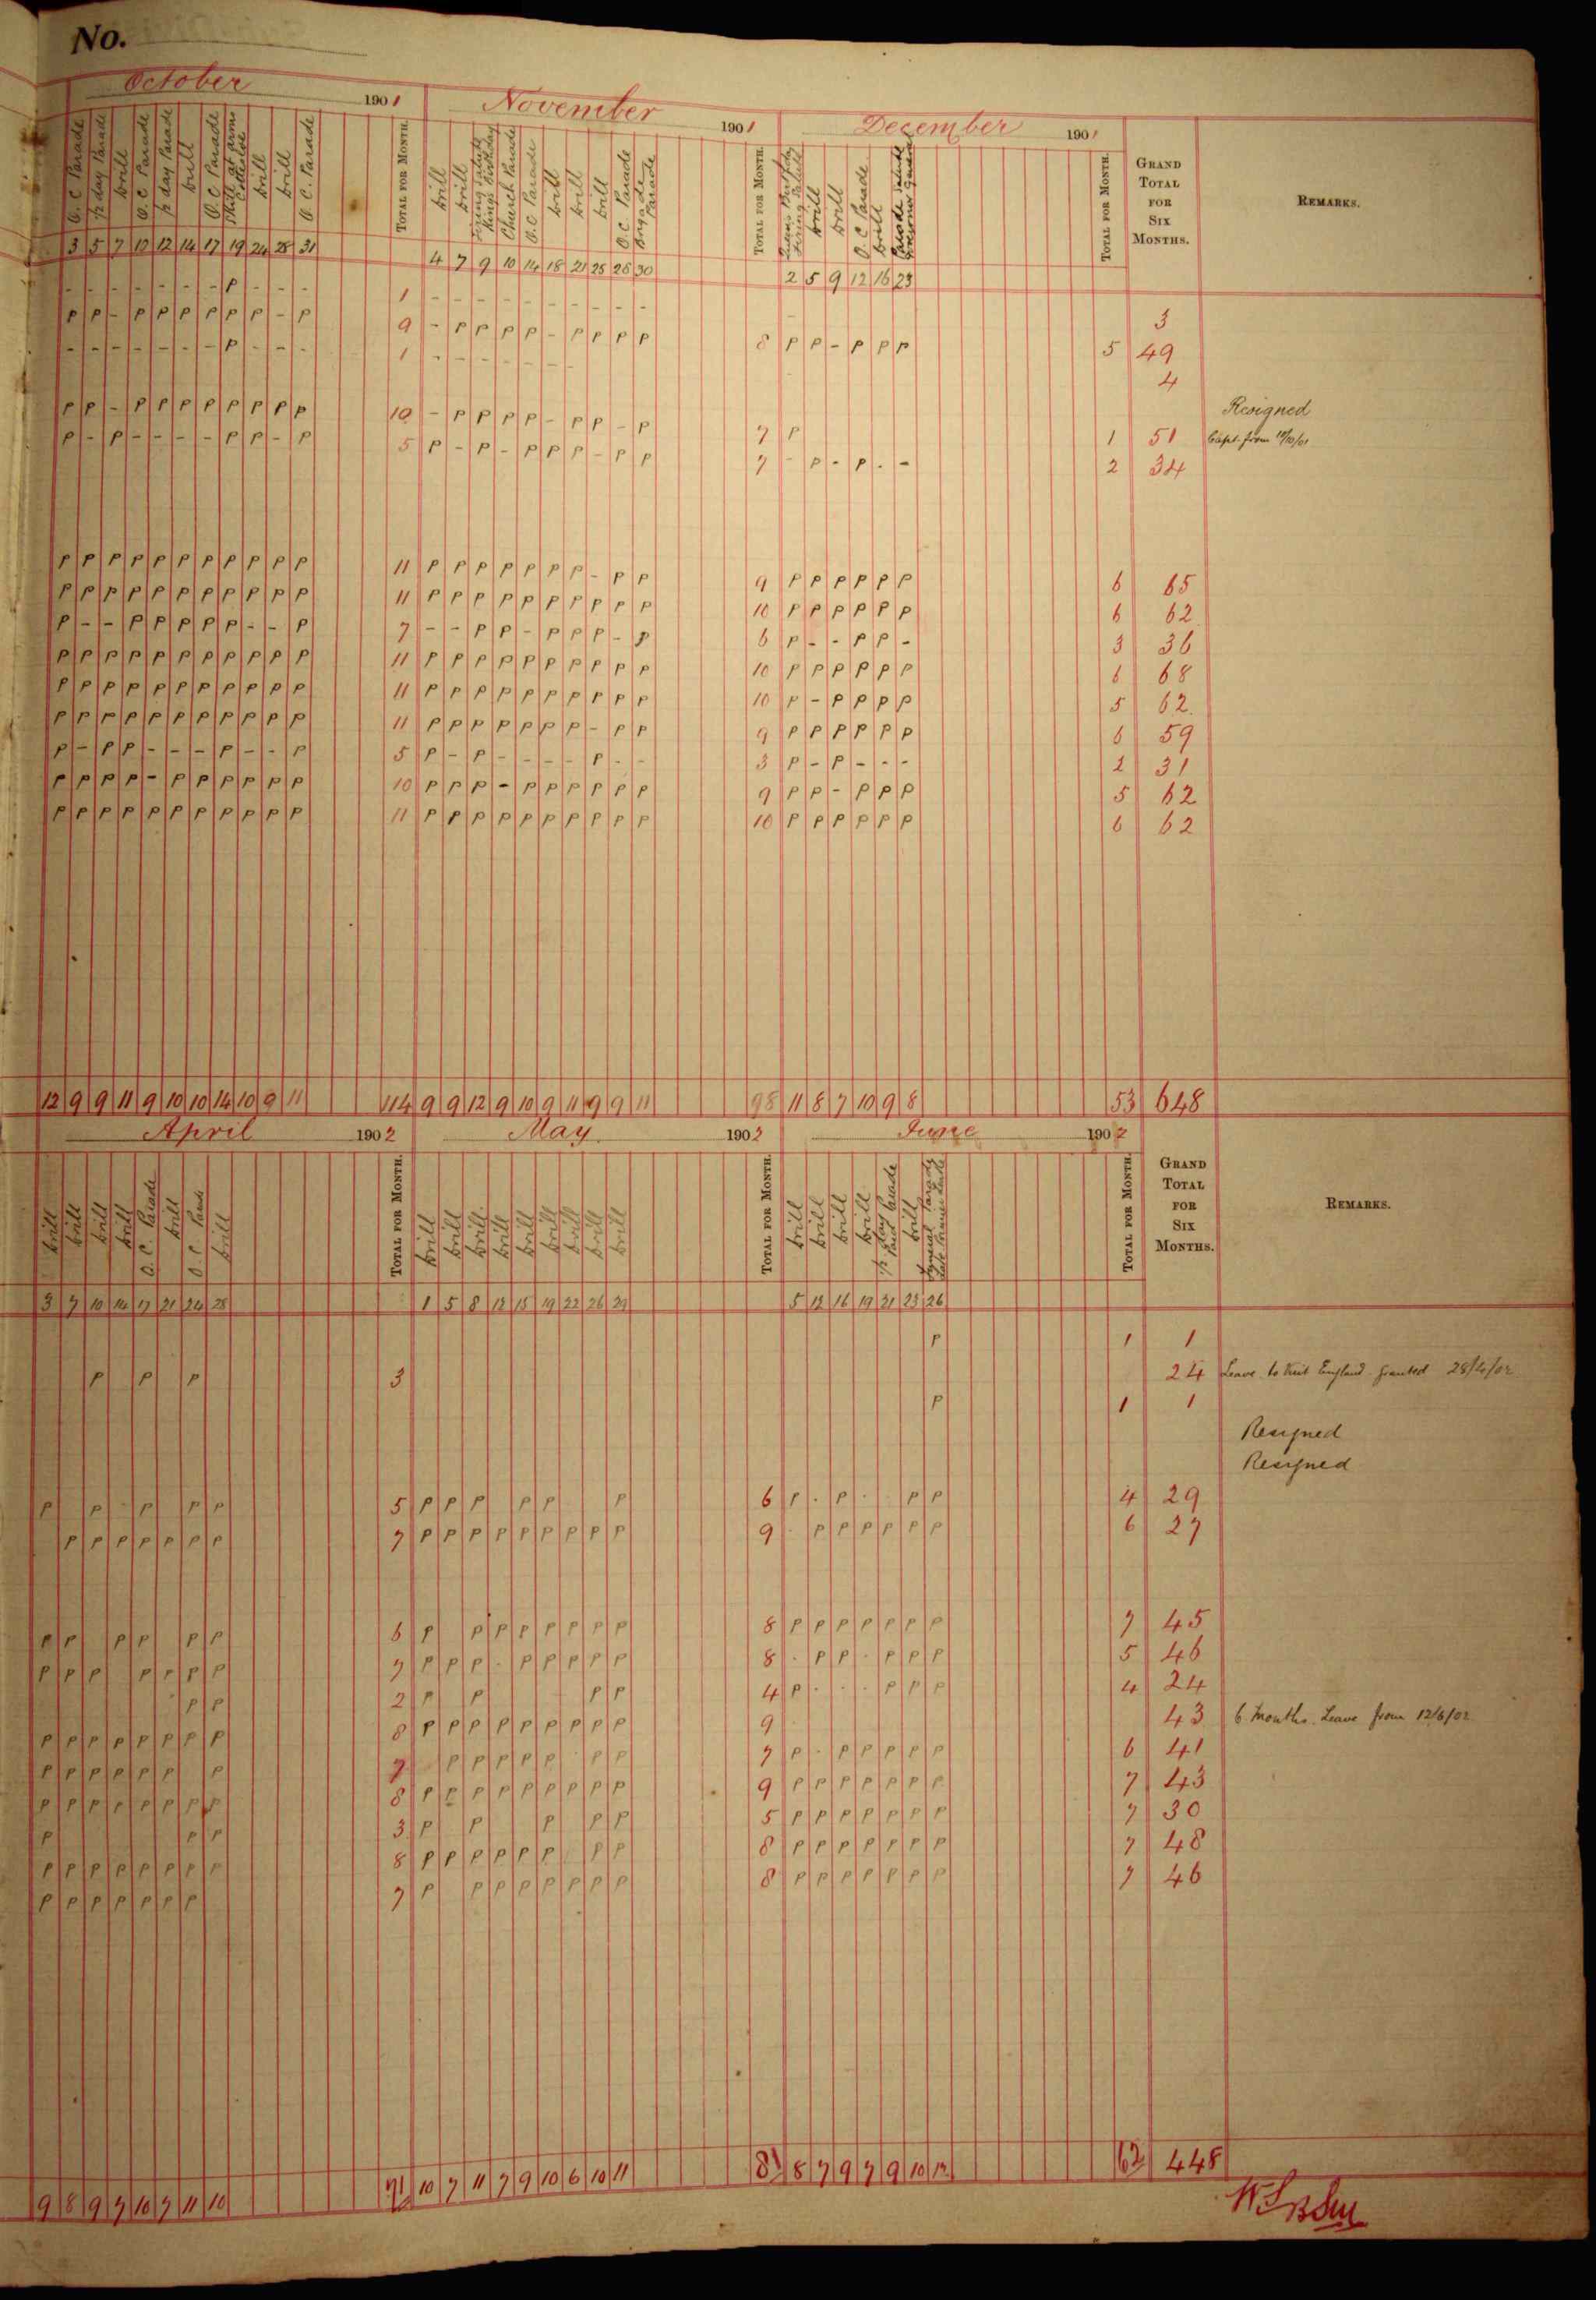 No.
October 1901 November 1901 December 1901
O.C Parade ½ day Parade Drill O.C Parade ½ day Parade Drill O.C Parade Skill at arms Drill Drill O.C. Parade TOTAL FOR MONTH. Drill Drill Firing Salute Kings Birthday Church Parade O.C Parade Drill Drill Drill O.C. Parade Brigade Parade TOTAL FOR MONTH. Queens Birthday Firing Salute Drill Drill O.C Parade Drill Parade Salute Governor General TOTAL FOR MONTH. GRAND TOTAL FOR SIX MONTHS. REMARKS.
3 5 7 10 12 14 17 19 24 28 31 4 7 9 10 14 18 21 25 28 30 2 5 9 12 16 23
- - - - - - - P - - - 1 - - - - - - - - - - 3
P P - P P P P P P - P 9 - P P P P - P P P P 8 P P - P P P 5 49
- - - - - - - P - - - 1 - - - - - - - 4
Resigned
P P - P P P P P P P P 10 - P P P P - P P - P 7 P 1 51 Capt. from
P - P - - - - P P - P 5 P - P - P P P - P P 7 - P - P - - 2 34
P P P P P P P P P P P 11 P P P P P P P - P P 9 P P P P P P 6 65
P P P P P P P P P P P 11 P P P P P P P P P P 10 P P P P P P 6 62
P - - P P P P P - - P 7 - - P P - P P P - P 6 P - - P P - 3 36
P P P P P P P P P P P 11 P P P P P P P P P P 10 P P P P P P 6 68
P P P P P P P P P P P 11 P P P P P P P P P P 10 P - P P P P 5 62.
P P P P P P P P P P P 11 P P P P P P P - P P 9 P P P P P P 6 59
P - P P - - - P - - P 5 P - P - - - - P - - 3 P - P - - - 2 31
P P P P - P P P P P P 10 P P P - P P P P P P 9 P P - P P P 5 62
P P P P P P P P P P P 11 P P P P P P P P P P 10 P P P P P P 6 62
12 9 9 11 9 10 10 14 10 9 11 114 9 9 12 9 10 9 11 9 9 11 98 11 8 7 10 9 8 53 648
April 1902 May 1902 June 1902
Drill Drill Drill Drill O.C. Parade Drill O.C Parade Drill TOTAL FOR MONTH. Drill Drill Drill. Drill Drill Drill Drill Drill Drill TOTAL FOR MONTH. Drill Drill Drill Drill ½ day Parade Drill Funeral Parade TOTAL FOR MONTH. GRAND TOTAL FOR SIX MONTHS. REMARKS.
3 7 10 14 17 21 24 28 1 5 8 12 15 19 22 26 29 5 12 16 19 21 23 26
P 1 1
P P P 3 24 Leave to visit England granted 28/4/02
P 1 1
Resigned
Resigned
P P P P P 5 P P P P P P 6 P . P . P P 4 29
P P P P P P P 7 P P P P P P P P P 9 . P P P P P P 6 27
P P P P P P 6 P P P P P P P P 8 P P P P P P P 7 45
P P P P P P P 7 P P P . P P P P P 8 . P P . P P P 5 46
P P 2 P P P P 4 P . . . P P P 4 24
P P P P P P P P 8 P P P P P P P P P 9 43 6 Months. Leave from 12/6/02
P P P P P P P 7 P P P P P P P 7 P . P P P P P 6 41
P P P P P P P P 8 P P P P P P P P P 9 P P P P P P P 7 43
P P P 3 P P P P P 5 P P P P P P P 7 30
P P P P P P P P 8 P P P P P P P P 8 P P P P P P P 7 48
P P P P P P P 7 P P P P P P P P 8 P P P P P P P 7 46
9 8 9 7 10 7 11 10 71 10 7 11 7 9 10 6 10 11 81 8 7 9 7 9 10 12 62 448